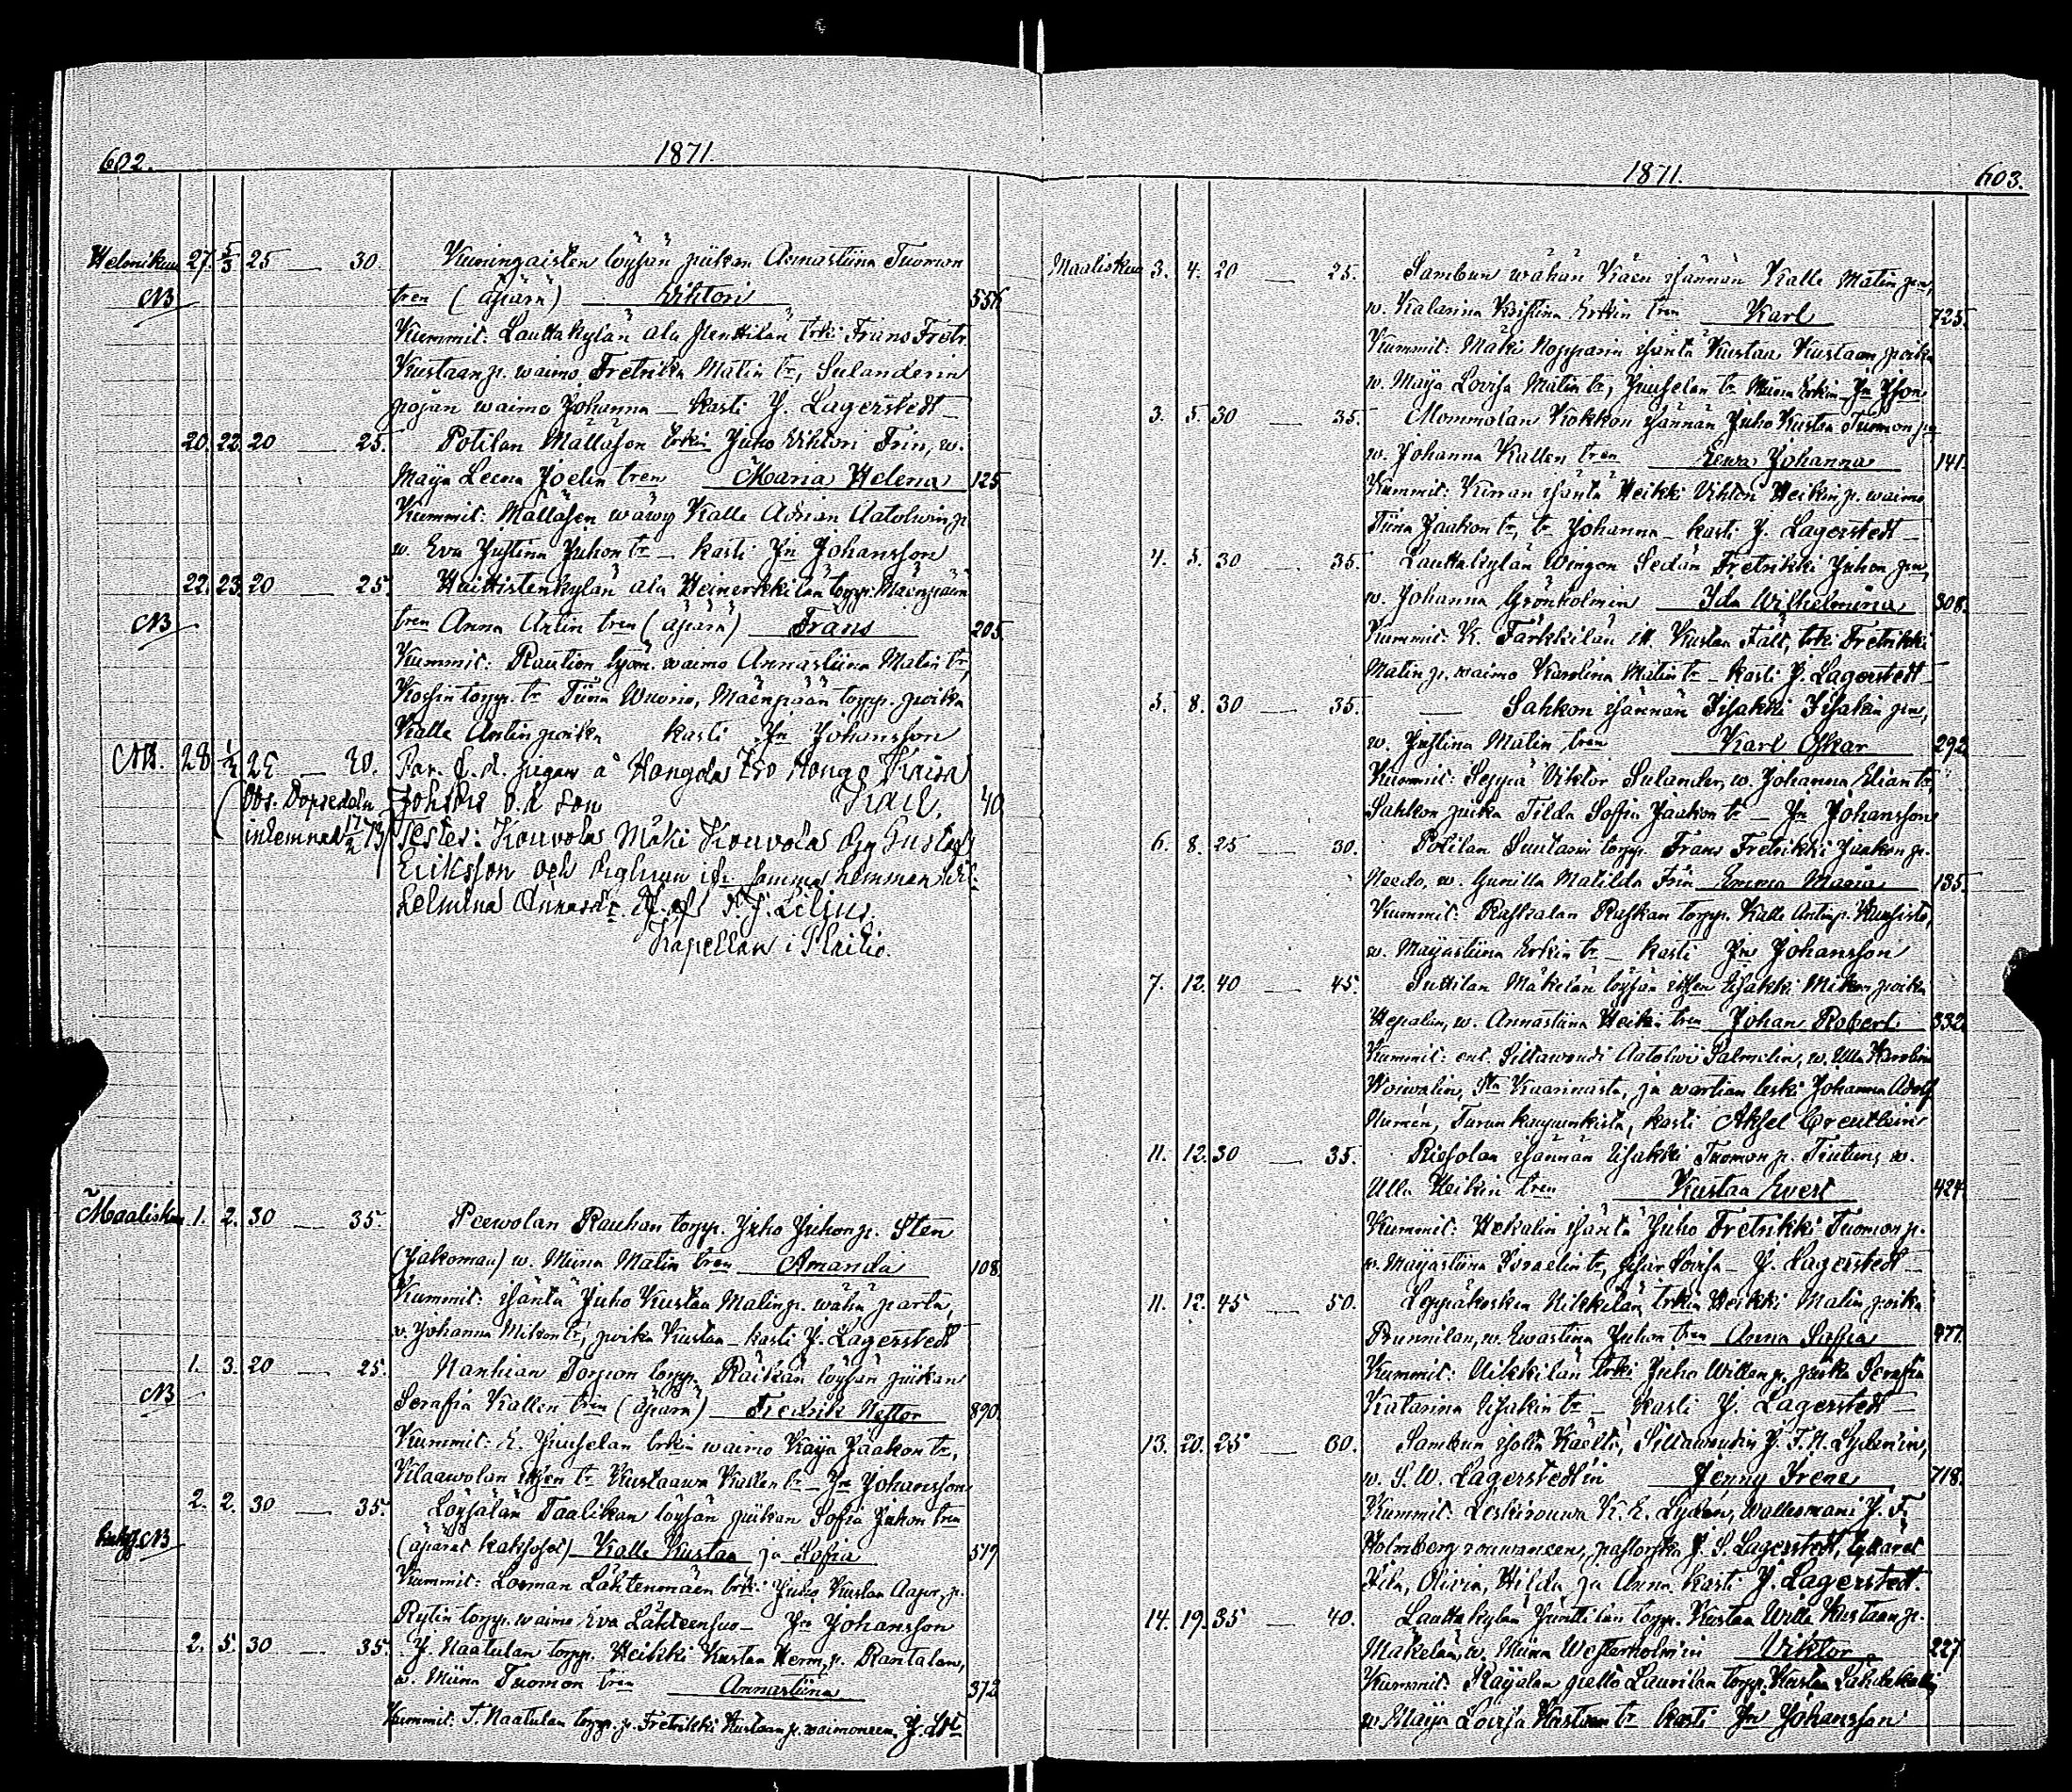 602. 1871.
Helmikuu 27. 5/3 25 — 30. Kuningaisten löysän piikan Annastiina Tuomon
NB tren (äpärä) Viktori 556
Kummit: Lauttakylän ala Penttilän trki Frans Fretr.
Kustaan p. waimo Fretrika Matin tr, Sulanderin
pojan waimo Johanna — kasti J. Lagerstedt —
20. 22. 20 — 25. Potilan Mälläsen trkin Juho Viktori Frin, w.
Maija Leena Joelin tren Maria Helena 125
Kummit: Mälläsen wäwy Kalle Adrian Aatolwin p.
w. Eva Justina Juhon tr — kasti Jn Johansson
22. 23. 20 — 25. Huittistenkylän ala Heinerkkilän torpp. Mäenpään
NB tren Anna Antin tren (äpärä) Frans 205
Kummit: Raution työm. waimo Annastiina Matin tr,
torpp. tr Tiina Mäenpään torpp. poika
Kalle Antin poika kasti Jn Johansson
NB. 28. 25 — 30. Par. pigan à Hongola Iso Hongo Kaisa
Obs. Dopsedeln Johsdrs o.ä. son Karl, 40
inlemnad 17/2 73 Testes: Kouvola Mäki Kouvola Gustaf
Eriksson och samma hemman Wil-
helmina J. Lilius.
Kapellan i
Maaliskuu 1. 2. 30 — 35. Peewolan Rauhan torpp. Juho Juhon p. Sten
(Jalkoman) w. Miina Matin tren Amanda 108
Kummit: isäntä Juho Kustaa Matin p. wähä parta,
w. Johanna Mikon tr, poika Kustaa — kasti J. Lagerstedt
1. 3. 20 — 25. Nanhian Torpon torpp. Räikän löysän piikan
NB Serafia Kallen tren (äpärä) Fredrik Nestor 890
Kummit: E. Juuselan trkin waimo Kaija Jaakon tr,
tr Kustaawa Kallen tr — Jn Johansson
2. 2. 30 — 35. Löysälän Taalikan löysän piikan Sofia Juhon tren
NB (äpärät kaksoset) Kalle Kustaa ja Sofia 519
Kummit: Loeman Lähteenmäen trki Juho Kustaa p.
Rytin torpp. waimo Eva Lähteensuo — Jn Johansson
2. 5. 30 — 35. J. Naatulan torpp. Heikki Kustaa Herm. p. Rantalan,
w. Miina Tuomon tren Annastiina 372
Kummit: J. Naatulan torpp. p. Fretrikki Kustaan p. waimoneen, J. Ldt
1871. 603.
Maaliskuu 3. 4. 20 — 25. Sambun wähän Käen isännän Kalle Matin pn,
w. Katarina Kristina Erkin tren Karl 725
Kummit: Mäki Nopparin isäntä Kustaa Kustaan poika
w. Maija Lovisa Matin tr, Juuselan tr Miina Erkin — Jn Json
3. 5. 30 — 35. Mommolan Kokkon isännän Juho Kustaa Tuomon pn
w. Johanna Kallen tren Eewa Johanna 141
Kummit: Kirran isäntä Heikki Viktori Heikin p. waimo
Tiina Jaakon tr, tr Johanna — kasti J. Lagerstedt —
4. 5. 30 — 35. Lauttakylän Wingon Sedän Fretrikki Juhon pn,
w. Johanna Grönholmin Ida Wilhelmina 308
Kummit: K. Färkkilän itl. Kustaa Fält, trki Fretrikki
Matin p. waimo Karolina Matin tr — kasti J. Lagerstedt —
5. 8. 30 — 35. — Sahkon isännän Iisakki Iisakin pn,
w. Justina Matin tren Karl Oskar 292
Kummit: Seppä Viktor Sulander, w. Johanna Elian tr,
Sahkon piika Tilda Sofia Jaakon tr — Jn Johansson
6. 8. 25 — 30. Potilan Suutarin torpp. Frans Fretrikki Jaakon p.
w. Gunilla Matilda Frin Emma Maria 135
Kummit: Raskalan Ruskan torpp. Kalle Antin p. Kuusisto,
w. Maijastiina Erkin tr — kasti Jn Johansson
7. 12. 40 — 45. Suttilan Mäkelän löysän itsen Iisakki Mikon poika
Hepalan, w. Annastiina Heikin tren Johan Robert 332
Kummit: ent. Siltawouti Aatolwi Salmelin, w. Ulla Karolina
Woiwalin, Sta Kaarinasta, ja wartian leski Johanna Adolf.
Numén, Turun kaupunkista, kasti Aksel Creutlein
11. 12. 30 — 35. Riesolan isännän Iisakki Tuomon p. w.
Ulla Heikin tren Kustaa Evert 424
Kummit: Uekalin isäntä Juho Fretrikki Tuomon p.
w. Maijastiina Israelin tr, sisar Lovisa — J. Lagerstedt —
11. 12. 45 — 50. Leppäkosken Nikkilän trkin Heikki Matin poika
Punnilan, w. Ewastina Juhon tren Anna Sofia 477
Kummit: Nikkilän trki Juho Willen p. piika Serafia
Katarina Iisakin tr — kasti J. Lagerstedt —
13. 20. 25 — 30. Sambun isolta Käeltä, Siltawoudin J. F. N. Lydenin,
w. S. W. Lagerstedtin Jenny Irene 718
Kummit: Leskirouwa K. E. Lydén, Wallesmani J. F.
Holmberg rouwaneen, pastorska J. S. Lagerstedt, tyttäret
Olivia, Hilda ja Anna. kasti J. Lagerstedt.
14. 19. 35 — 40. Lauttakylän Junttilan torpp. Kustaa Wille Kustaan p.
Mäkelän, w. Miina Westerholmin Viktor 227
Kummit: Raijalan pelto Laurilan torpp. Kustaa
w. Maija Lovisa Kustaan tr kasti Jn Johansson